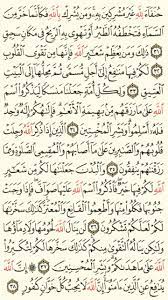 حُنَفَآءَ لِلَّهِ غَيْرَ مُشْرِكِينَ بِهِۦ ۚ وَمَن يُشْرِكْ بِٱللَّهِ فَكَأَنَّمَا خَرَّ مِنَ
ٱلسَّمَآءِ فَتَخْطَفُهُ ٱلطَّيْرُ أَوْ تَهْوِى بِهِ ٱلرِّيحُ فِى مَكَانٍ سَحِيقٍ
٣١ ذَٰلِكَ وَمَن يُعَظِّمْ شَعَٰٓئِرَ ٱللَّهِ فَإِنَّهَا مِن تَقْوَى ٱلْقُلُوبِ
٣٢ لَكُمْ فِيهَا مَنَٰفِعُ إِلَىٰٓ أَجَلٍ مُّسَمًّى ثُمَّ مَحِلُّهَآ إِلَى ٱلْبَيْتِ
ٱلْعَتِيقِ ٣٣ وَلِكُلِّ أُمَّةٍ جَعَلْنَا مَنسَكًا لِّيَذْكُرُوا۟ ٱسْمَ ٱللَّهِ
عَلَىٰ مَا رَزَقَهُم مِّنۢ بَهِيمَةِ ٱلْأَنْعَٰمِ ۗ فَإِلَٰهُكُمْ إِلَٰهٌ وَٰحِدٌ فَلَهُۥٓ
أَسْلِمُوا۟ ۗ وَبَشِّرِ ٱلْمُخْبِتِينَ ٣٤ ٱلَّذِينَ إِذَا ذُكِرَ ٱللَّهُ وَجِلَتْ
قُلُوبُهُمْ وَٱلصَّٰبِرِينَ عَلَىٰ مَآ أَصَابَهُمْ وَٱلْمُقِيمِى ٱلصَّلَوٰةِ
وَمِمَّا رَزَقْنَٰهُمْ يُنفِقُونَ ٣٥ وَٱلْبُدْنَ جَعَلْنَٰهَا لَكُم مِّن شَعَٰٓئِرِ
ٱللَّهِ لَكُمْ فِيهَا خَيْرٌ ۖ فَٱذْكُرُوا۟ ٱسْمَ ٱللَّهِ عَلَيْهَا صَوَآفَّ ۖ فَإِذَا وَجَبَتْ
جُنُوبُهَا فَكُلُوا۟ مِنْهَا وَأَطْعِمُوا۟ ٱلْقَانِعَ وَٱلْمُعْتَرَّ ۚ كَذَٰلِكَ سَخَّرْنَٰهَا
لَكُمْ لَعَلَّكُمْ تَشْكُرُونَ ٣٦ لَن يَنَالَ ٱللَّهَ لُحُومُهَا وَلَا دِمَآؤُهَا
وَلَٰكِن يَنَالُهُ ٱلتَّقْوَىٰ مِنكُمْ ۚ كَذَٰلِكَ سَخَّرَهَا لَكُمْ لِتُكَبِّرُوا۟
ٱللَّهَ عَلَىٰ مَا هَدَىٰكُمْ ۗ وَبَشِّرِ ٱلْمُحْسِنِينَ ٣٧ ۞ إِنَّ ٱللَّهَ
يُدَٰفِعُ عَنِ ٱلَّذِينَ ءَامَنُوٓا۟ ۗ إِنَّ ٱللَّهَ لَا يُحِبُّ كُلَّ خَوَّانٍ كَفُورٍ ٣٨